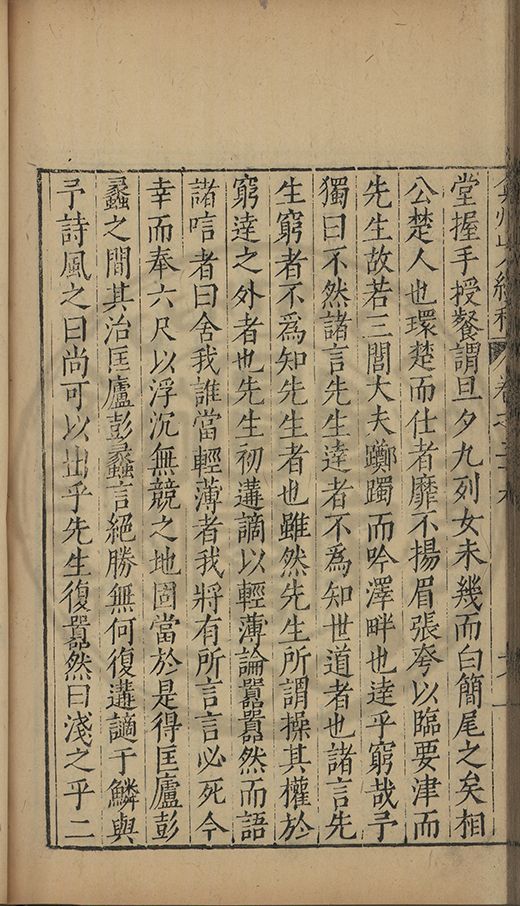 弇州山人續稿 卷之
堂握手授餐謂旦夕九列女未幾而白簡尾之矣相
公楚人也環楚而仕者靡不揚眉張夸以臨要津而
先生故若三閭大夫躑躅而吟澤畔也達乎窮哉予
獨曰不然諸言先生達者不爲知世道者也諸言先
生窮者不爲知先生者也雖然先生所謂操其權於
窮達之外者也先生初遘謫以輕薄論囂囂然而語
諸唁者曰舍我誰當輕薄者我將有所言言必死今
幸而奉六尺以浮沉無競之地固當於是得匡廬彭
蠡之間其治匡廬彭蠡言絕勝無何復遘謫于鱗與
予詩風之曰尚可以出乎先生復囂然曰淺之乎二